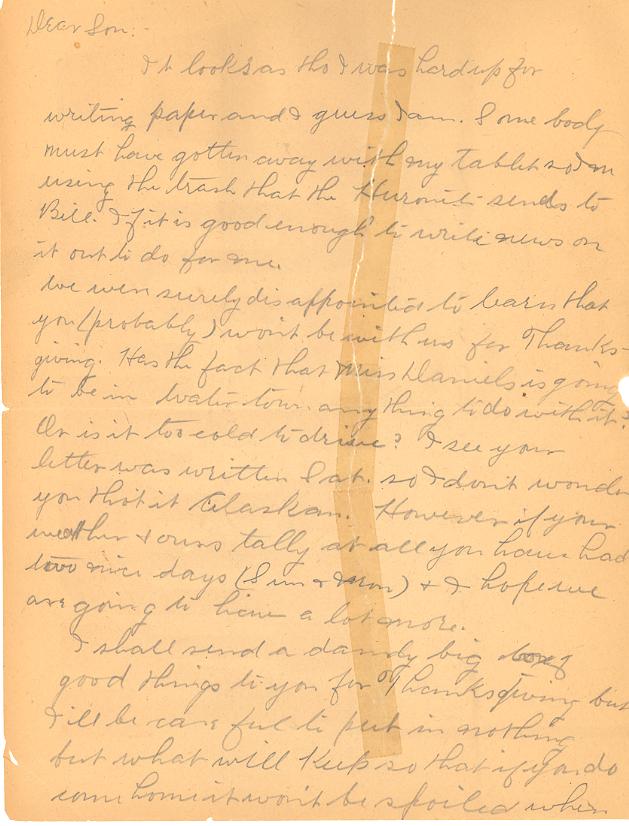 Dear Son:-
It looks as tho I was hard up for
writing paper and I guess I am. Some body
must have gotten away with my tablet so I'm
using the trash that the Huronite sends to
Bill. If it is good enough to write news on
it out to do for me.
We were surely disappointed to learn that
you (probably) won't be with us for Thanks-
giving. Has the fact that Miss Daniels is going
to be in Watertown anything to do with it?
Or is it too cold to drive? I see your
letter was written Sat. so I don't wonder
you thot it Alaskan. However if your
weather & ours tally at all you have had
two nice days (Sun & Mon) & I hope we
are going to have a lot more.
I shall send a dandy big box of
good things to you for Thanksgiving but
I'll be careful to put in nothing
but what will keep so that if you do
come home it won't be spoiled when